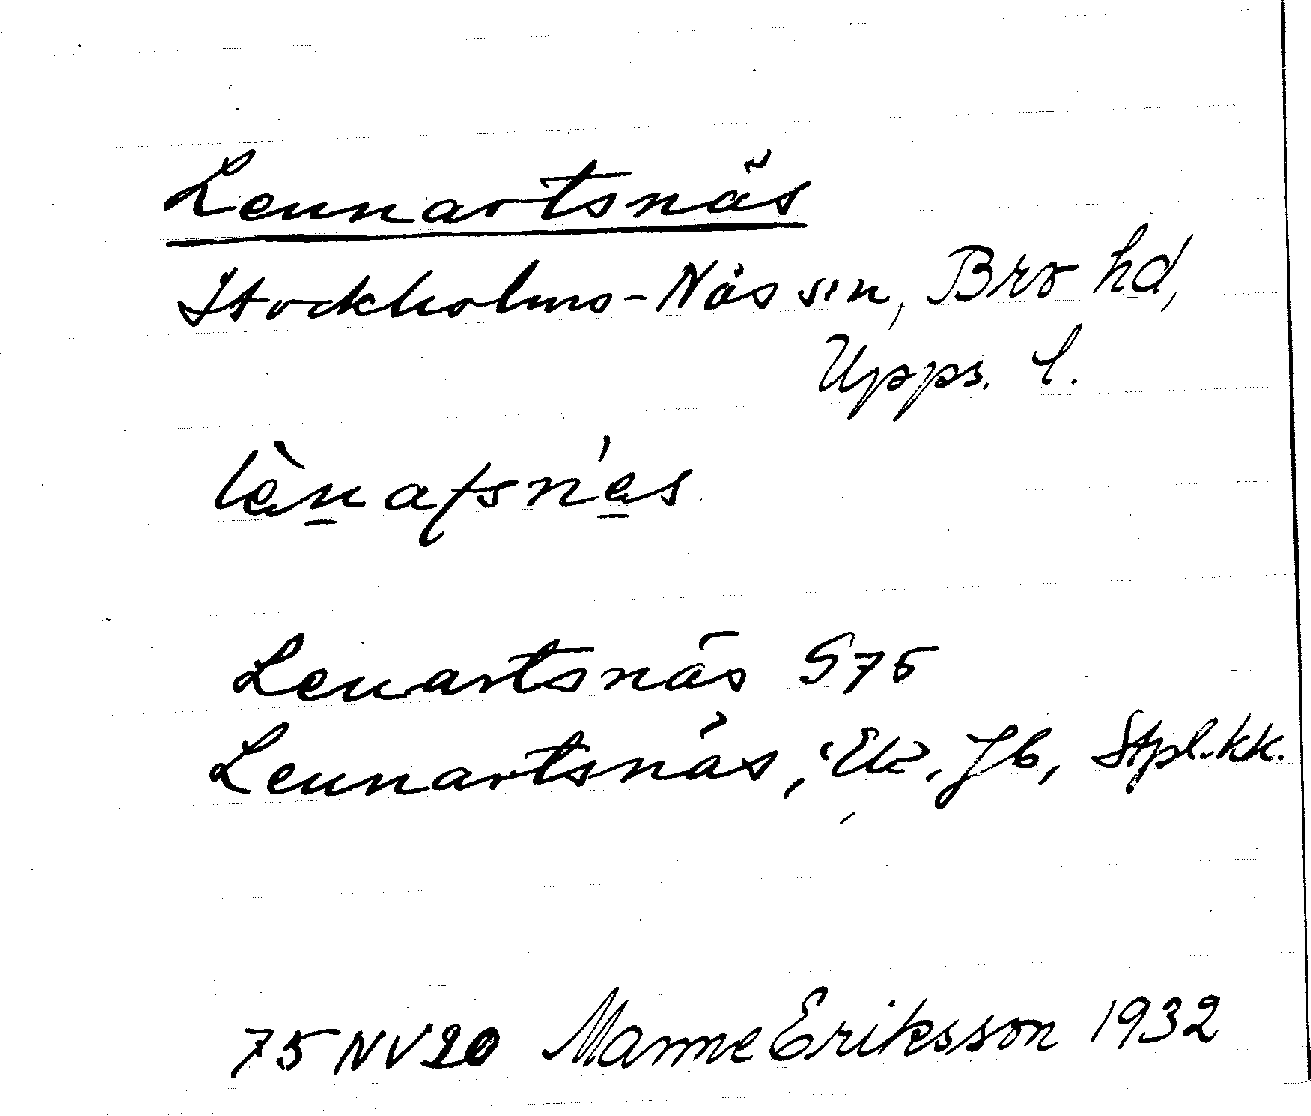 Lennartsnäs
Stockholms-Näs sn, Bro hd,
Upps. l.
Lennartsnäs G75
Lennartsnäs, Ek. Jb, Stpl.kk.
75 NV 20 Manne Eriksson 1932